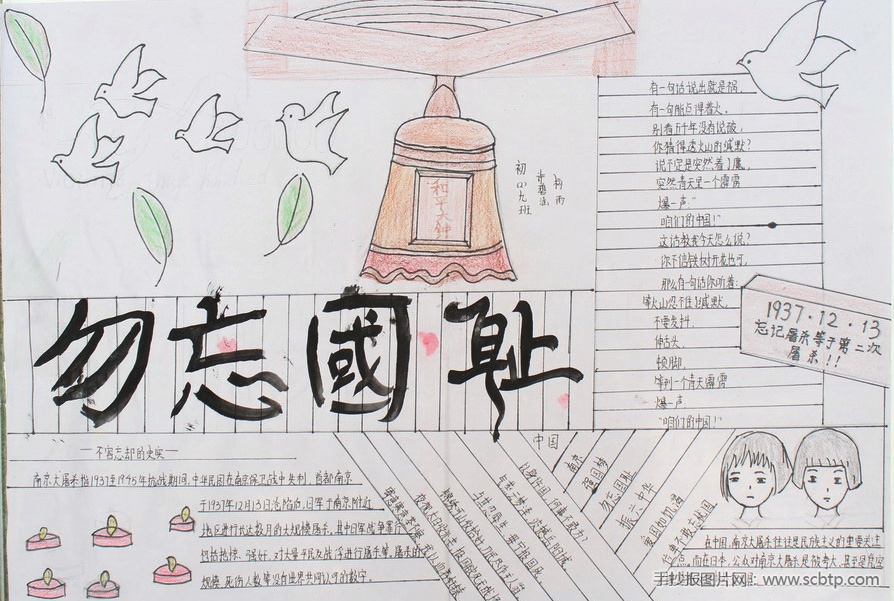 有一句话说出就是祸，
有一句能点得着火。
别看五千年没有说破，
你猜得透火山的缄默？
说不定是突然着了魔，
突然青天里一个霹雳
爆一声：
“咱们的中国！”
这话教我今天怎么说？
你不信铁树开花也可，
那么有一句话你听着：
等火山忍不住了缄默，
不要发抖，
伸舌头，
顿脚，
等到一个青天霹雳
爆一声
“咱们的中国！”
和平大钟
初
九班
1937·12·13
忘记屠杀等于第二次
屠杀!!
勿忘國耻
—不容忘却的史实—
南京大屠杀指1937至1945年抗战期间,中华民国在南京保卫战中失利、首都南京
于1937年12月13日沦陷后,日军于南京附近
地区进行长达数月的大规模屠杀,其中日军战争罪行
包括抢掠、强奸、对大量平民及战俘进行屠杀等,屠杀的
规模、死伤人数等没有世界共同认可的数字。
中国
南京
强国梦
勿忘国耻
振兴中华
爱国如饥渴
位卑不敢忘忧国
在中国,南京大屠杀往往是民族主义的重要关注
点。而在日本,公众对南京大屠杀是被夸大、甚至是虚
手抄报图片网：www.scbtp.com